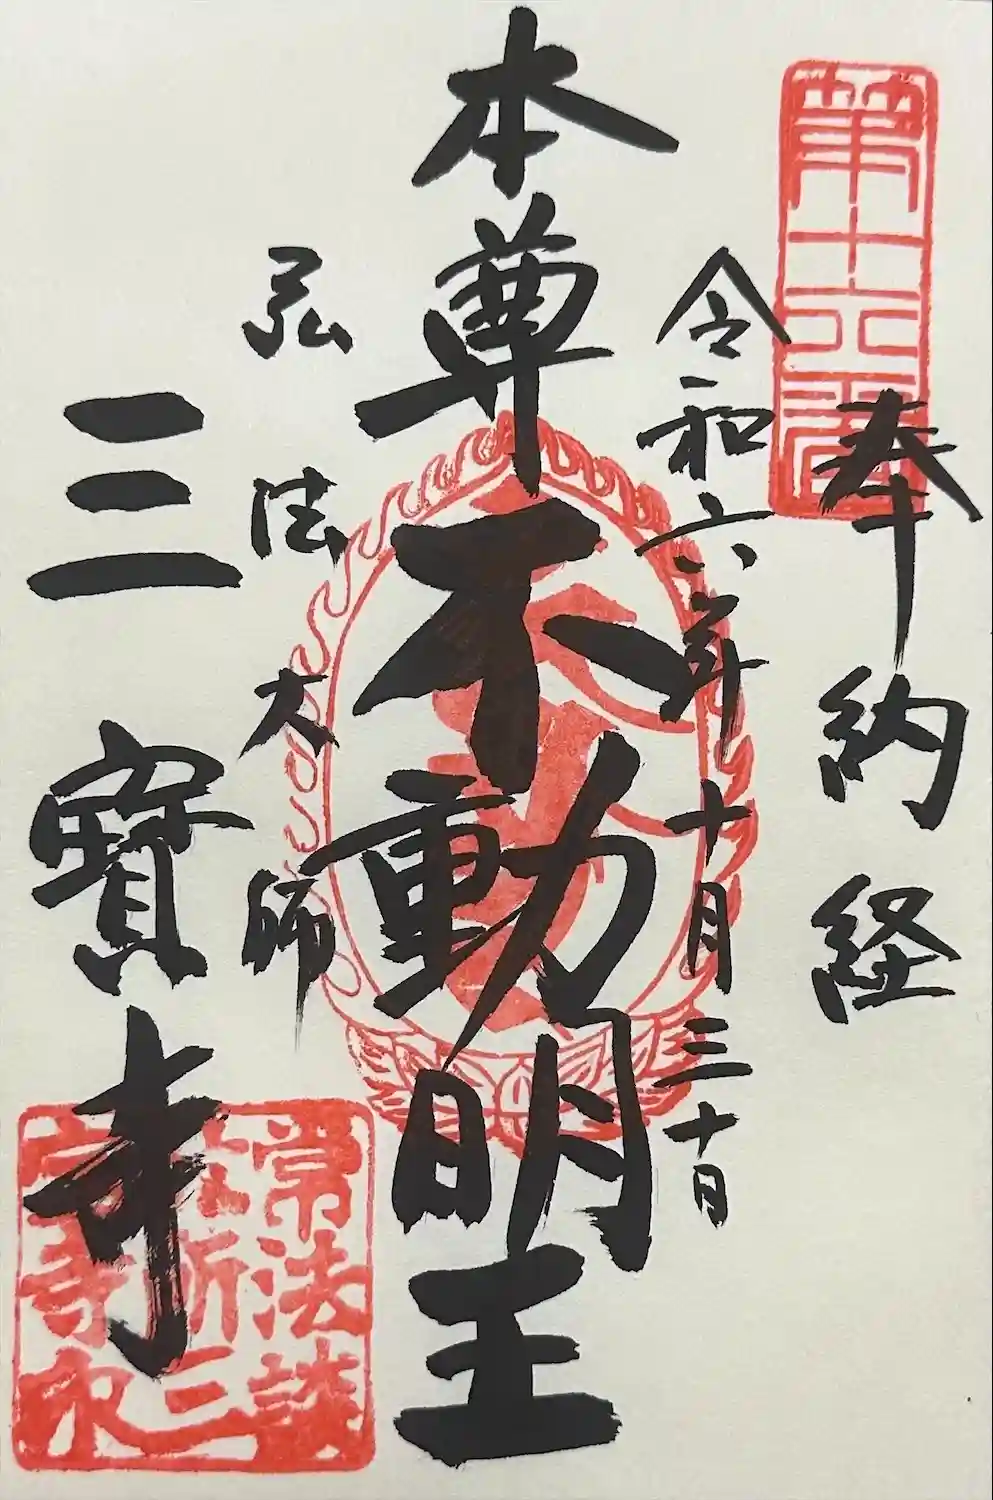 第十六番
奉納経
令和六年十月三十日
本尊不動明王
弘法大師
三寶寺
常法談
林所三
宝寺印